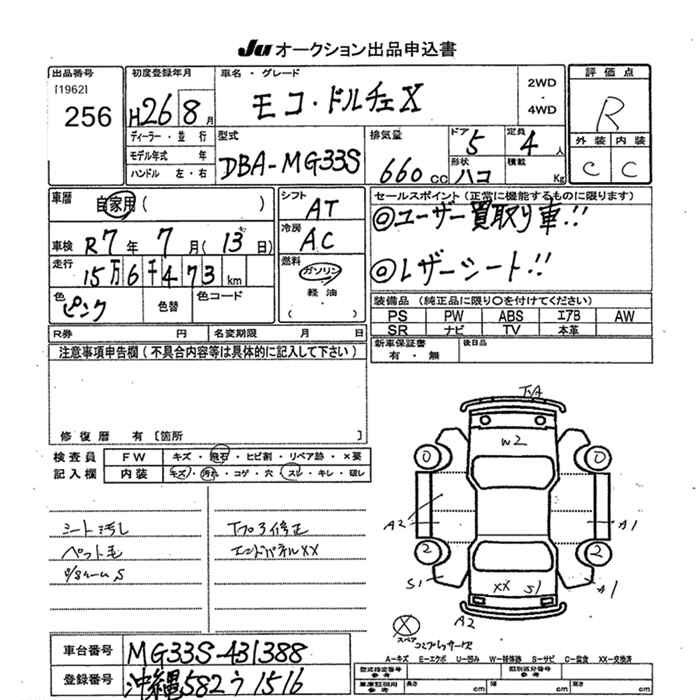 Ju オークション出品申込書
出品番号 初度登録年月 車名・グレード 評価点
[1962]
256 H26 8月 モコ・ドルチェX 2WD・4WD R
ディーラー・並行 型式 排気量 ドア 5 定員 4人 外装 内装
モデル年式 年 DBA-MG33S 660cc 形状 ハコ 積載 Kg C C
ハンドル 左・右
車歴 自家用( ) シフト AT セールスポイント(正常に機能するものに限ります)
◎ユーザー買取り車!!
車検 R7年 7月(13日) 冷房 AC
走行 15万6千473km 燃料 ガソリン 軽油 ( ) ◎レザーシート!!
色 ピンク 色替 色コード 装備品(純正品に限り○を付けてください)
PS PW ABS エアB AW
R券 円 名変期限 月 日 SR ナビ TV 本革
注意事項申告欄(不具合内容等は具体的に記入して下さい) 新車保証書 有・無 後日品
修復歴 有[箇所 ]
検査員 FW キズ・飛石・ヒビ割・リペア跡・×要
記入欄 内装 キズ・汚れ・コゲ・穴・スレ・キレ・破レ
シート汚し
ペット毛
Tプラ修正
エンドパネルXX
W2
A2 A1
2 2
S1 XX S1 A1
A2
スペア
車台番号 MG33S-431388
登録番号 沖縄582う1516
A-キズ E-エクボ U-凹み W-補修跡 S-サビ C-腐食 XX-交換済
型式指定番号 参考 類別区分番号 参考
車庫証明用 参考 長さ cm 幅 cm 高さ cm